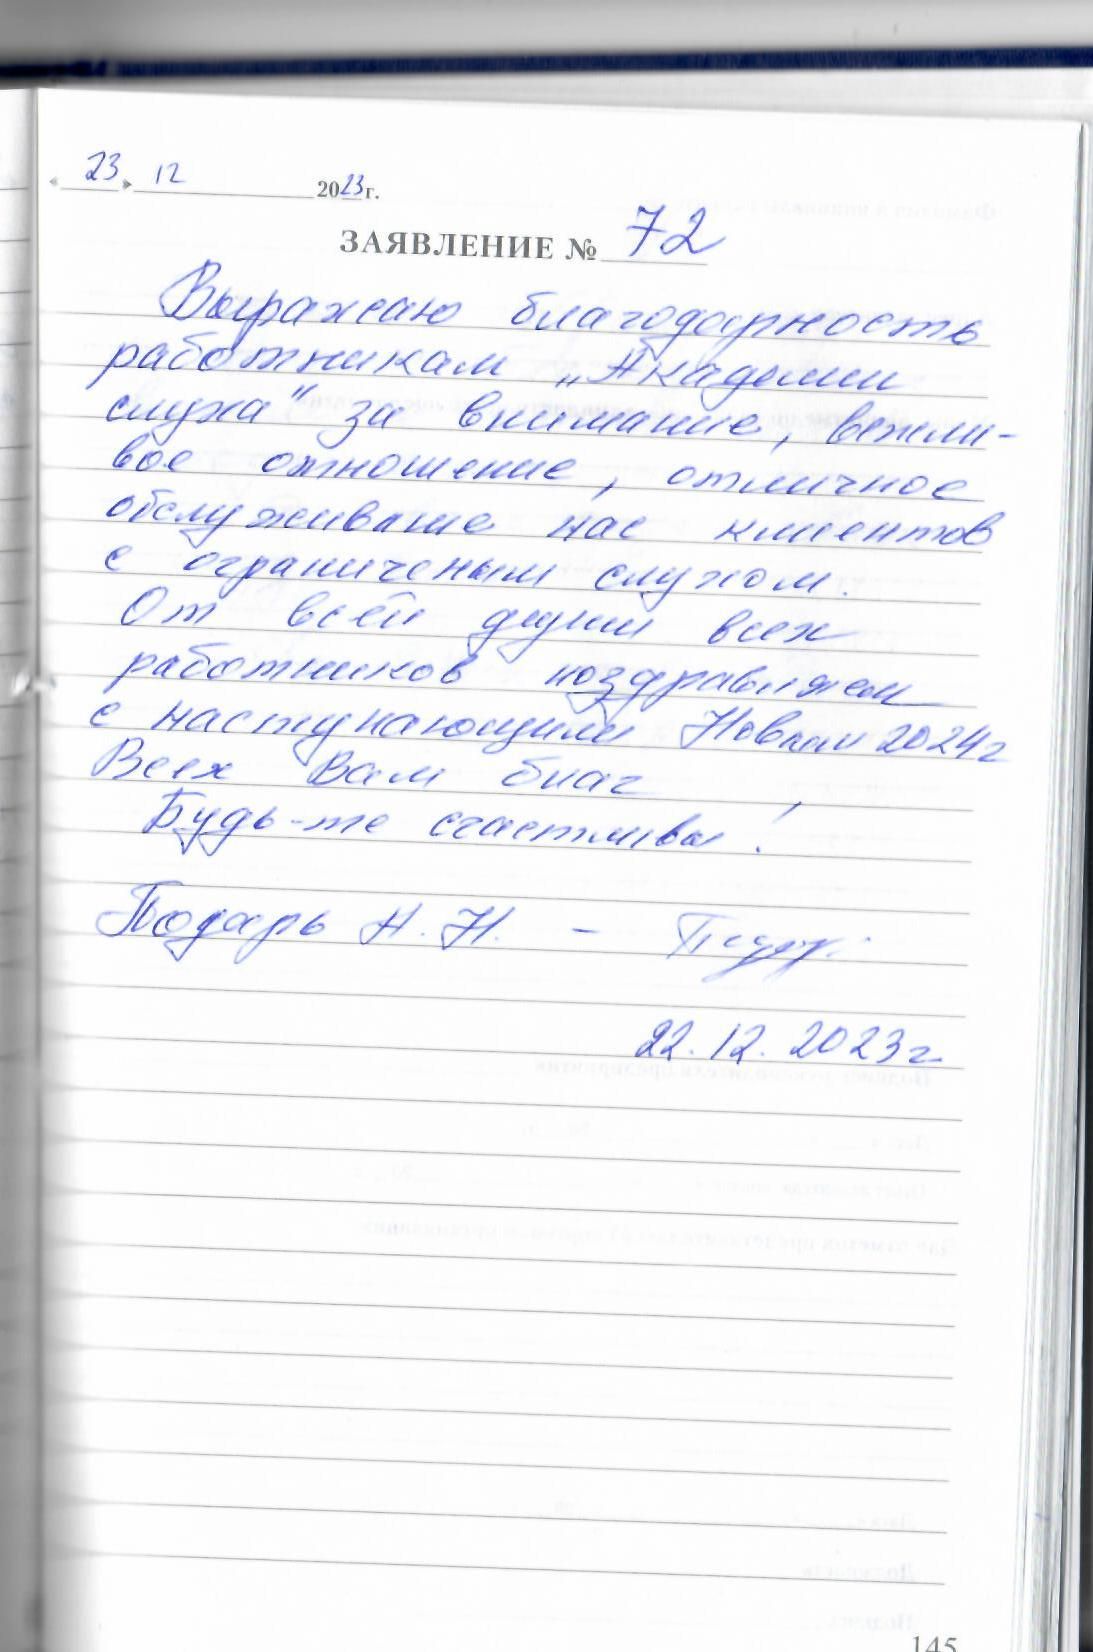 « 23 » 12 2023 г.
ЗАЯВЛЕНИЕ № 72
Выражаю благодарность
работникам „Академии
слуха“ за внимание, вежли-
вое отношение, отличное
обслуживание нас клиентов
с ограниченым слухом.
От всей души всех
работников поздравляем
с наступающим Новым 2024г
Всех Вам благ !
Будь-те счастливы !
Подарь Н.Н. –
22.12.2023г.
145